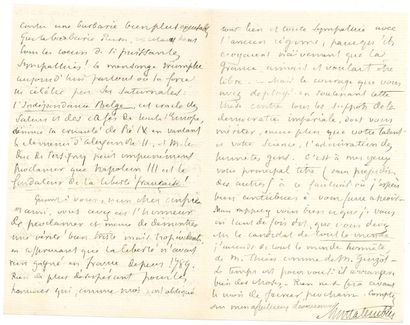 contre une barbarie bien plus
que la barbarie
tous les coeurs de si puissantes
sympathies! le mensonge triomphe
aujourd'hui partout où la force
ses saturnales:
l'Indépendance Belge, cet oracle des
salons et des cafés de toute l'Europe,
la cruauté de Pie IX en vantant
la clémence d'Alexandre II, et M. le
duc de Persigny peut impunément
proclamer que Napoléon III est le
fondateur de la liberté française!
Quant à vous, mon cher confrère
et ami, vous avez eu l'honneur
de proclamer et même de démontrer
une vérité bien triste mais
en affirmant que la liberté n'avait
rien gagné en France depuis 1789.
Rien de plus désespérant pour les
hommes qui, comme moi, ont abdiqué
tout lien et toute sympathie avec
l'ancien régime, parce qu'ils
croyaient naïvement que la
France aimait et voulait être
libre. — Mais le courage que vous
avez déployé en soutenant cette
thèse contre tous les suppôts de la
démocratie impériale, doit vous
mériter, encore plus que votre talent
et votre science, l'admiration des
honnêtes gens. C'est à mes yeux
votre principal titre (sans préjudice
des autres) à ce fauteuil où j'espère
bien contribuer à vous faire asseoir.
bien que je
vous
êtes le candidat de tout le monde:
j'entends de tout le monde honnête
de M. Thiers comme de M. Guizot.
Le temps est pour vous: il arrangera
bien des choses. Rien ne se fera avant
le mois de février prochain. Comptez
sur mon affectueux dévouement
Montalembert